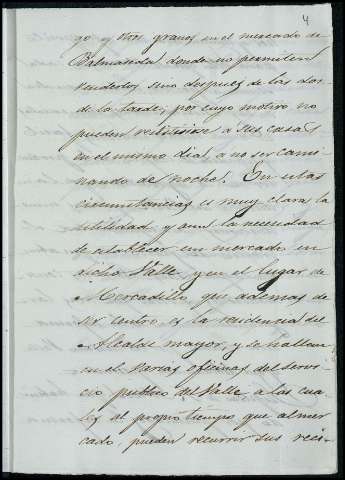 4
go y otros granos en el mercado de
Valmaseda donde no permiten
venderlos sino despues de las dos
de la tarde; por cuyo motivo no
pueden restituirse a sus casas
en el mismo dia, a no ser cami-
nando de noche. En estas
circunstancias es muy clara la
utilidad, y aun la necesidad
de establecer un mercado en
dicho Valle, y en el lugar de
Mercadillo que ademas de
ser centro, es la residencia del
Alcalde mayor, y se hallan
en el varias oficinas del servi-
cio publico del Valle a las cua-
les al propio tiempo que al mer-
cado, pueden recurrir sus veci-